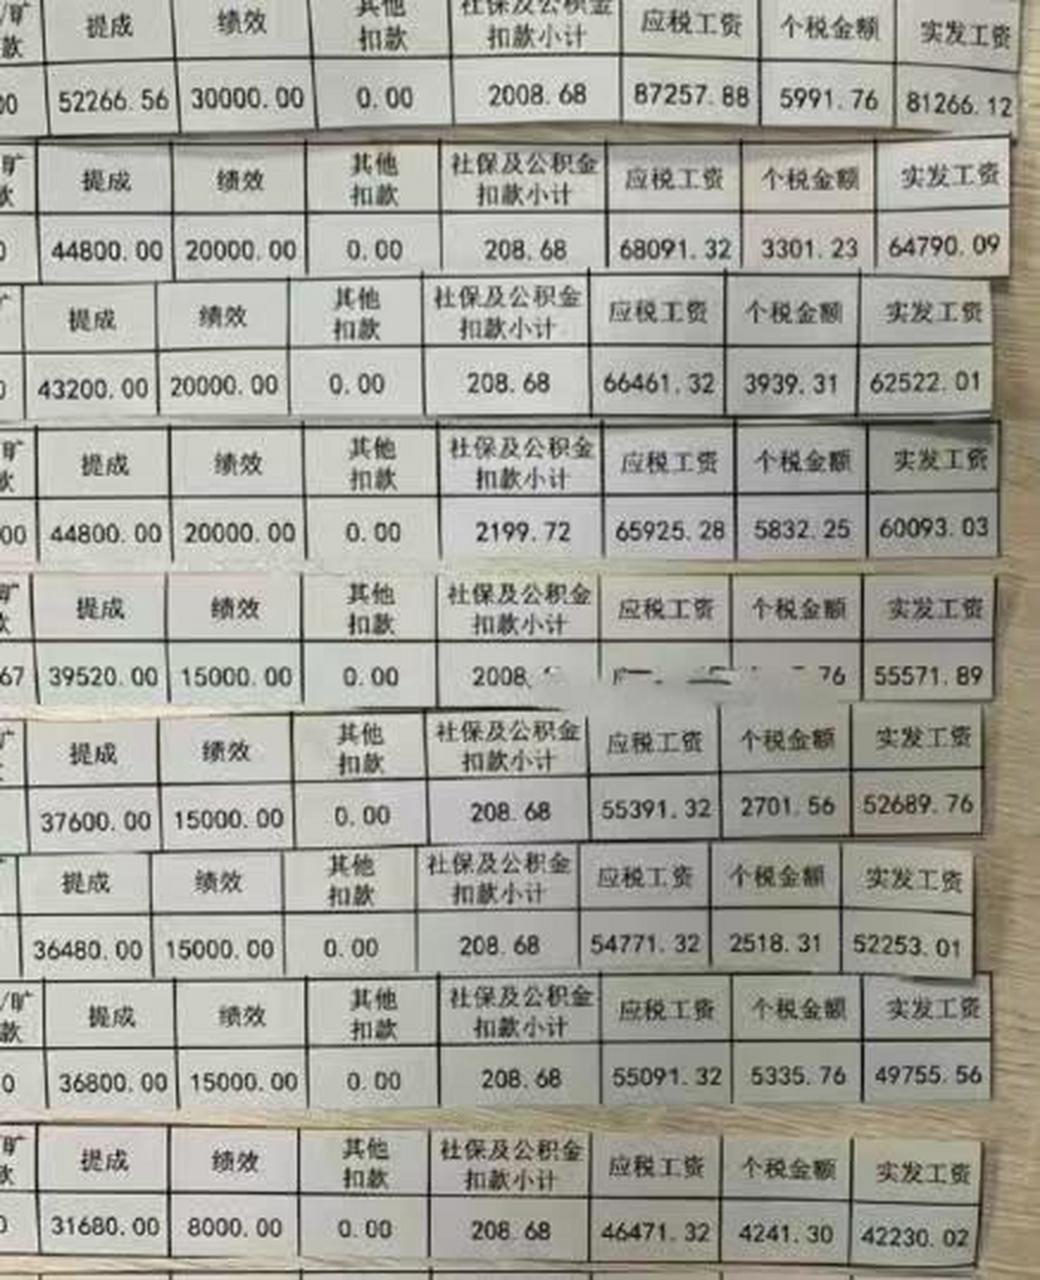 /旷 提成 绩效 其他 社保及公积金 应税工资 个税金额 实发工资
款 扣款 扣款小计
00 52266.56 30000.00 0.00 2008.68 87257.88 5991.76 81266.12
旷 提成 绩效 其他 社保及公积金 应税工资 个税金额 实发工资
款 扣款 扣款小计
0 44800.00 20000.00 0.00 208.68 68091.32 3301.23 64790.09
提成 绩效 其他 社保及公积金 应税工资 个税金额 实发工资
扣款 扣款小计
0 43200.00 20000.00 0.00 208.68 66461.32 3939.31 62522.01
旷 提成 绩效 其他 社保及公积金 应税工资 个税金额 实发工资
款 扣款 扣款小计
00 44800.00 20000.00 0.00 2199.72 65925.28 5832.25 60093.03
旷 提成 绩效 其他 社保及公积金 应税工资 个税金额 实发工资
款 扣款 扣款小计
67 39520.00 15000.00 0.00 2008. 76 55571.89
旷 提成 绩效 其他 社保及公积金 应税工资 个税金额 实发工资
扣款 扣款小计
37600.00 15000.00 0.00 208.68 55391.32 2701.56 52689.76
提成 绩效 其他 社保及公积金 应税工资 个税金额 实发工资
扣款 扣款小计
36480.00 15000.00 0.00 208.68 54771.32 2518.31 52253.01
/旷 提成 绩效 其他 社保及公积金 应税工资 个税金额 实发工资
款 扣款 扣款小计
0 36800.00 15000.00 0.00 208.68 55091.32 5335.76 49755.56
旷 提成 绩效 其他 社保及公积金 应税工资 个税金额 实发工资
款 扣款 扣款小计
0 31680.00 8000.00 0.00 208.68 46471.32 4241.30 42230.02